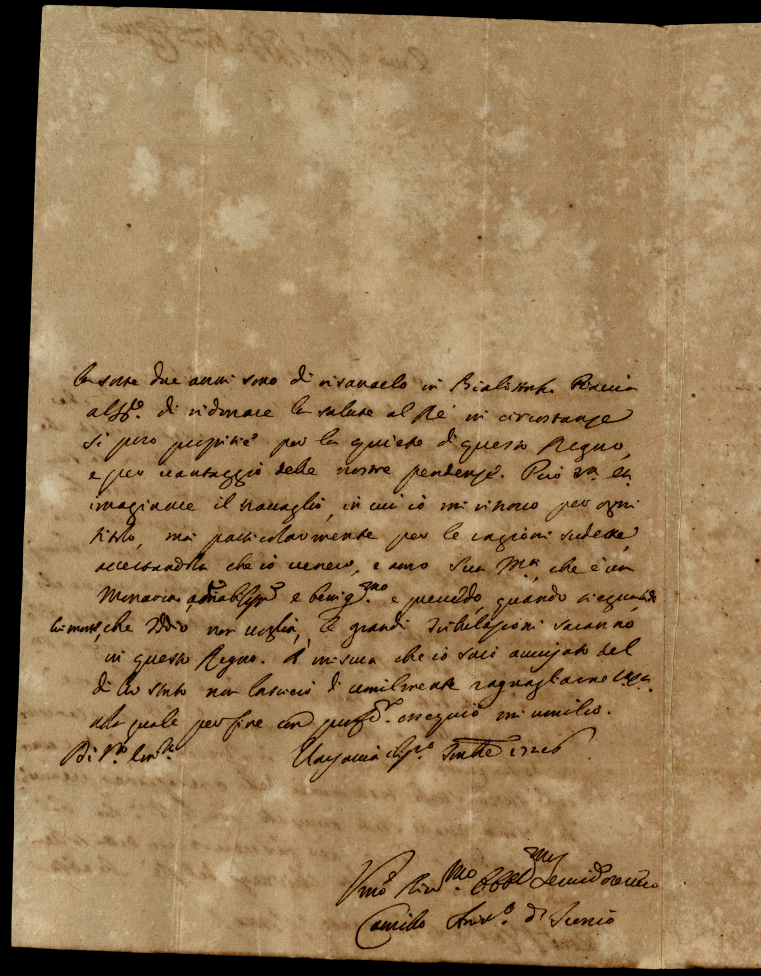 la sorte due anni sono di risanarlo in Bialistok. Piaccia
all'Ssmo. di ridonare la salute al Rè in circostanze
si poco propitie per la quiete di questo Regno,
e per vantaggio delle nostre pendenze. Può Vra. Em.
imaginare il travaglio, in cui io mi ritrovo per ogni
titolo, ma particolarmente per le ragioni sudette,
accertandola che io venero, e amo Sua Mtà, che è un
Monarca amabilmo e benigmo. e prevedo, quando segua di
lui morte, che Iddio non voglia, le grandi tribulazioni saranno
in questo Regno. A misura che io sarò avvisato del
di lui stato non lascierò di umilmente ragguagliarne
alla quale per fine con profmo. ossequio mi umilio.
Di V. Emza. 7mbre 1726
Umo
Camillo Arciv.o di